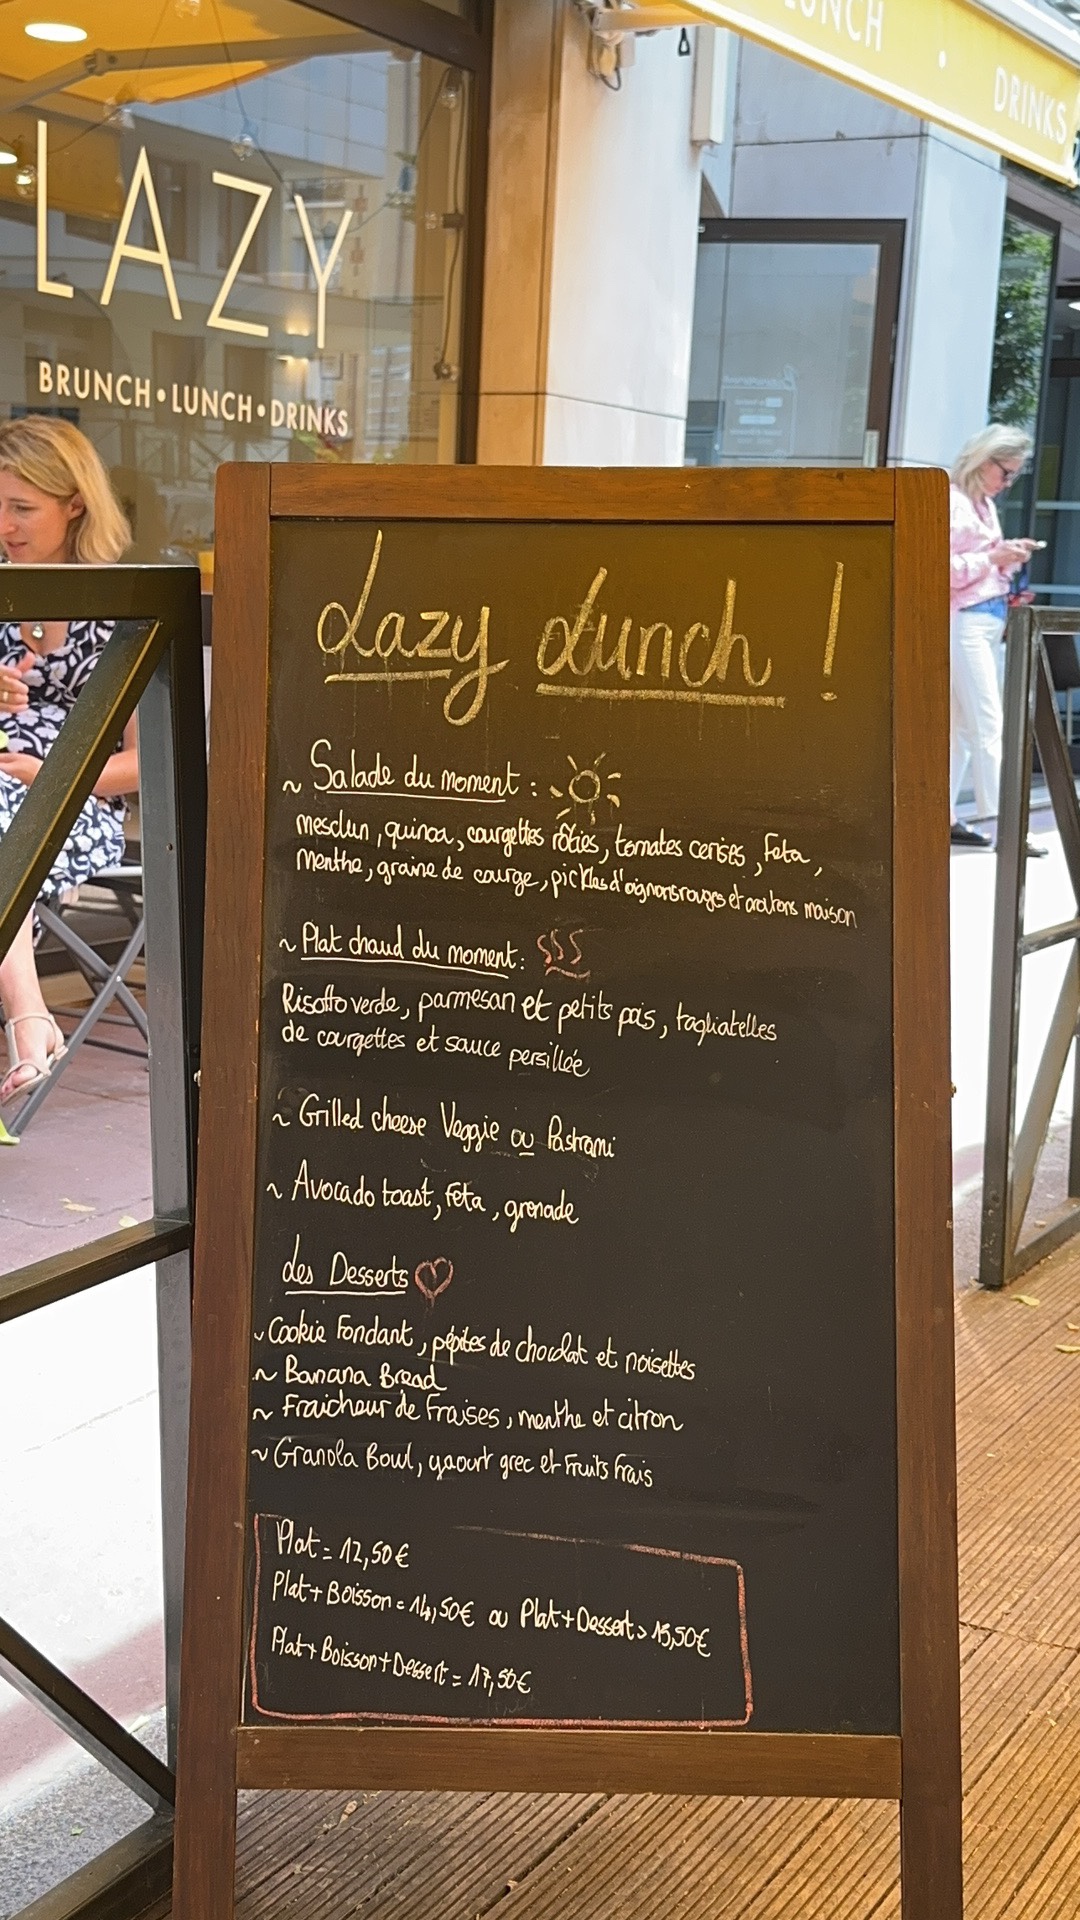 LUNCH • DRINKS
LAZY
BRUNCH • LUNCH • DRINKS
Lazy Lunch !
~ Salade du moment :
mesclun, quinoa, courgettes rôties, tomates cerises, feta,
menthe, graine de courge, pickles d'oignons rouges et croutons maison
~ Plat chaud du moment :
Risotto verde, parmesan et petits pois, tagliatelles
de courgettes et sauce persillée
~ Grilled cheese Veggie ou Pastrami
~ Avocado toast, feta, grenade
Les Desserts
~ Cookie Fondant, pépites de chocolat et noisettes
~ Banana Bread
~ Fraicheur de Fraises, menthe et citron
~ Granola Bowl, yaourt grec et Fruits frais
Plat = 12,50€
Plat + Boisson = 14,50€ ou Plat + Dessert > 15,50€
Plat + Boisson + Dessert = 17,50€